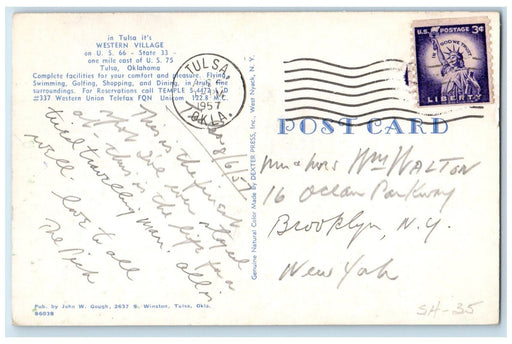 in Tulsa it's
WESTERN VILLAGE
on U. S. 66 - State 33 -
one mile east of U. S. 75
Tulsa, Oklahoma
Complete facilities for your comfort and pleasure. Flying,
Swimming, Golfing, Shopping, and Dining, in truly fine
surroundings. For Reservations call TEMPLE
#337 Western Union Telefax FQN Unicom 122.8 M.C.
8/6/57
This is the finest
spot I've ever stayed
at. This is the life for a
tired travelling man. All is
well. Love to all
The Dick
Pub. by John W. Gough, 2637 S. Winston, Tulsa, Okla.
86038
Genuine Natural Color Made by DEXTER PRESS, Inc., West Nyack, N. Y.
TULSA,
1957
OKLA.
U.S. POSTAGE 3¢
IN GOD WE TRUST
LIBERTY
POST CARD
Mr & Mrs Wm WALTON
16 Ocean Parkway
Brooklyn, N.Y.
New York
SH-35